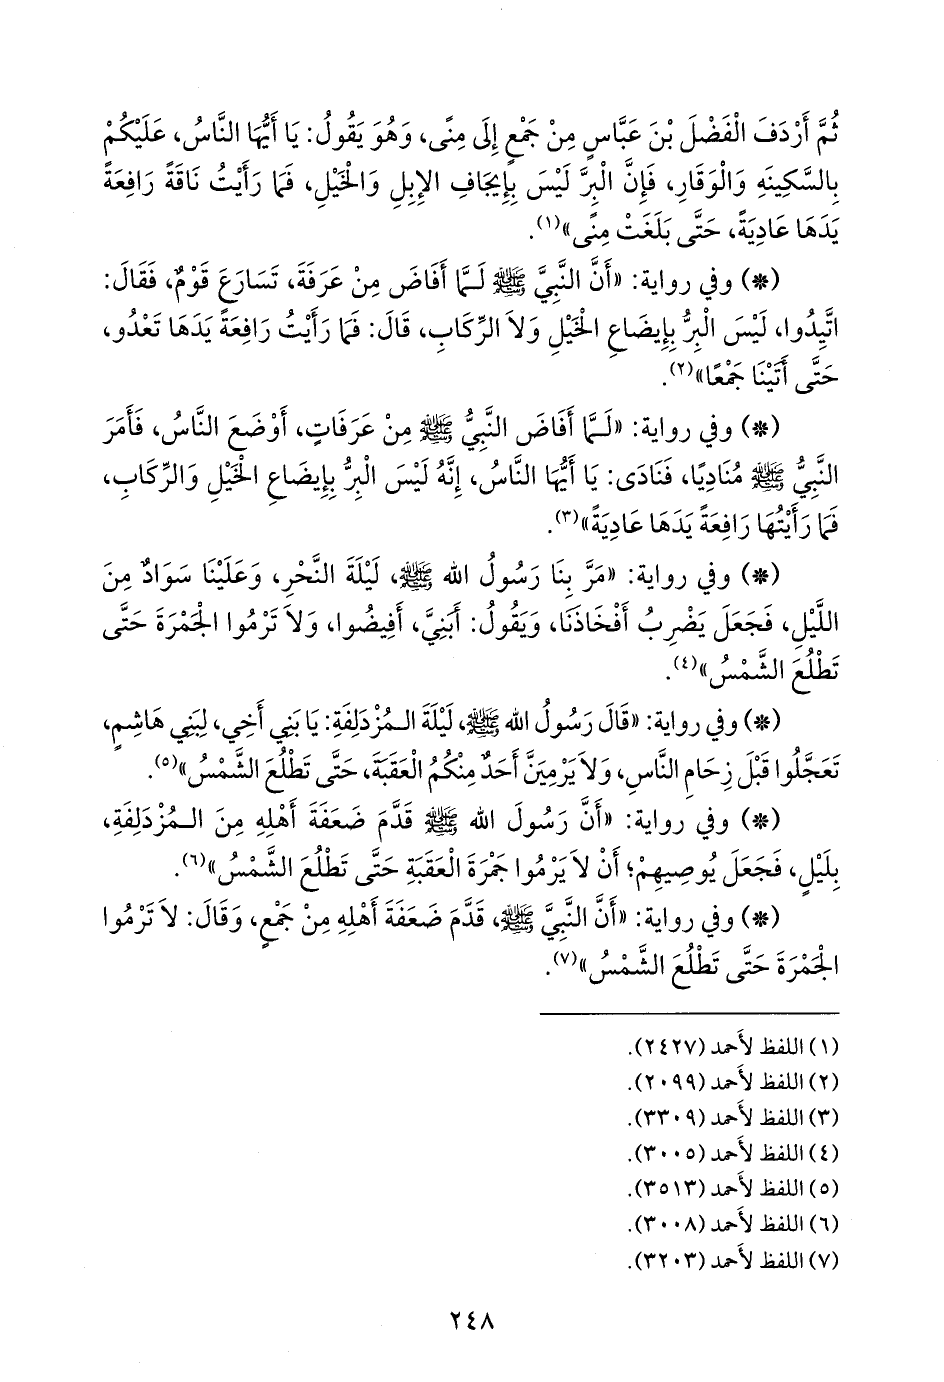 ثُمَّ أَرْدَفَ الْفَضْلَ بْنَ عَبَّاسٍ مِنْ جَمْعٍ إِلَى مِنًى، وَهُوَ يَقُولُ: يَا أَيُّهَا النَّاسُ، عَلَيْكُمْ
بِالسَّكِينَهِ وَالْوَقَارِ، فَإِنَّ الْبِرَّ لَيْسَ بِإِيجَافِ الإِبِلِ وَالْخَيْلِ، فَمَا رَأَيْتُ نَاقَةً رَافِعَةً
يَدَهَا عَادِيَةً، حَتَّى بَلَغَتْ مِنًى»(١).
(*) وفي رواية: «أَنَّ النَّبِيَّ ﷺ لَـمَّا أَفَاضَ مِنْ عَرَفَةَ، تَسَارَعَ قَوْمٌ، فَقَالَ:
اتَّئِدُوا، لَيْسَ الْبِرُّ بِإِيضَاعِ الْخَيْلِ وَلاَ الرِّكَابِ، قَالَ: فَمَا رَأَيْتُ رَافِعَةً يَدَهَا تَعْدُو،
حَتَّى أَتَيْنَا جَمْعًا»(٢).
(*) وفي رواية: «لَـمَّا أَفَاضَ النَّبِيُّ ﷺ مِنْ عَرَفَاتٍ، أَوْضَعَ النَّاسُ، فَأَمَرَ
النَّبِيُّ ﷺ مُنَادِيًا، فَنَادَى: يَا أَيُّهَا النَّاسُ، إِنَّهُ لَيْسَ الْبِرُّ بِإِيضَاعِ الْخَيْلِ وَالرِّكَابِ،
فَمَا رَأَيْتُهَا رَافِعَةً يَدَهَا عَادِيَةً»(٣).
(*) وفي رواية: «مَرَّ بِنَا رَسُولُ الله ﷺ، لَيْلَةَ النَّحْرِ، وَعَلَيْنَا سَوَادٌ مِنَ
اللَّيْلِ، فَجَعَلَ يَضْرِبُ أَفْخَاذَنَا، وَيَقُولُ: أَبَنِيَّ، أَفِيضُوا، وَلاَ تَرْمُوا الْجَمْرَةَ حَتَّى
تَطْلُعَ الشَّمْسُ»(٤).
(*) وفي رواية: «قَالَ رَسُولُ الله ﷺ، لَيْلَةَ الـمُزْدَلِفَةِ: يَا بَنِي أَخِي، لِبَنِي هَاشِمٍ،
تَعَجَّلُوا قَبْلَ زِحَامِ النَّاسِ، وَلاَ يَرْمِيَنَّ أَحَدٌ مِنْكُمُ الْعَقَبَةَ، حَتَّى تَطْلُعَ الشَّمْسُ»(٥).
(*) وفي رواية: «أَنَّ رَسُولَ الله ﷺ قَدَّمَ ضَعَفَةَ أَهْلِهِ مِنَ الـمُزْدَلِفَةِ،
بِلَيْلٍ، فَجَعَلَ يُوصِيهِمْ؛ أَنْ لاَ يَرْمُوا جَمْرَةَ الْعَقَبَةِ حَتَّى تَطْلُعَ الشَّمْسُ»(٦).
(*) وفي رواية: «أَنَّ النَّبِيَّ ﷺ، قَدَّمَ ضَعَفَةَ أَهْلِهِ مِنْ جَمْعٍ، وَقَالَ: لاَ تَرْمُوا
الْجَمْرَةَ حَتَّى تَطْلُعَ الشَّمْسُ»(٧).
(١) اللفظ لأَحمد (٢٤٢٧).
(٢) اللفظ لأَحمد (٢٠٩٩).
(٣) اللفظ لأَحمد (٣٣٠٩).
(٤) اللفظ لأَحمد (٣٠٠٥).
(٥) اللفظ لأَحمد (٣٥١٣).
(٦) اللفظ لأَحمد (٣٠٠٨).
(٧) اللفظ لأَحمد (٣٢٠٣).
٢٤٨